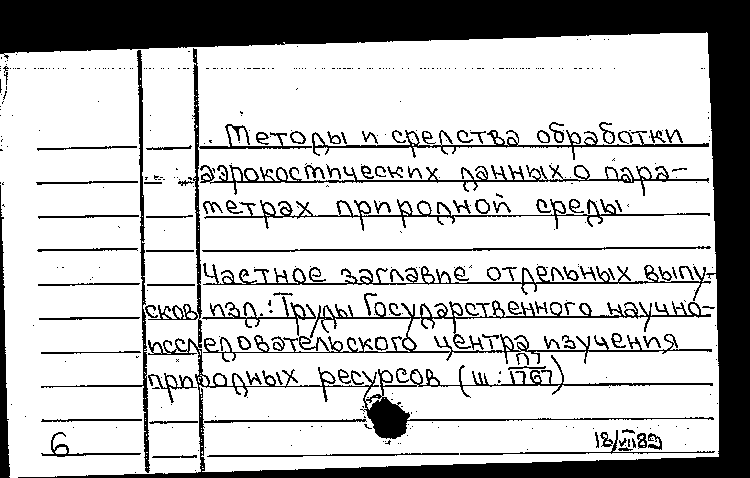 Методы и средства обработки
аэрокосмических данных о пара-
метрах природной среды.
Частное заглавие отдельных выпу-
сков изд.: Труды Государственного научно-
исследовательского центра изучения
природных ресурсов (Ш: П7/1767)
6 18/VII 89